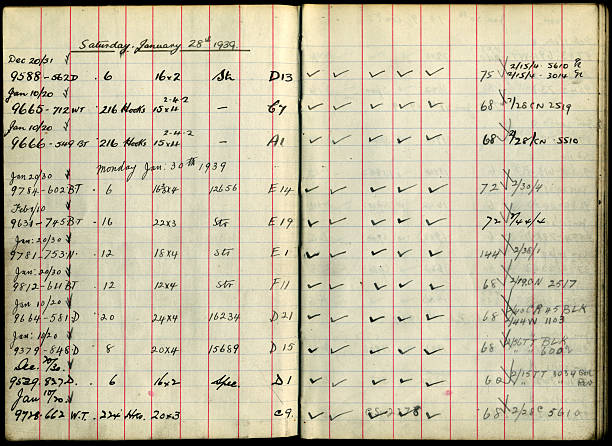 Saturday. January 28th 1939.
Dec 20/31
9588-562D . 6 16x2 Str D13 ✓ ✓ ✓ ✓ ✓ 75 2/15/4 . 5610
2/15/4 . 3014
Jan 10/20
9665-712 WT . 216 Hooks 2-4-2 15x4 — C7 ✓ ✓ ✓ ✓ ✓ 68 /28 CN 2519
Jan 10/20
9666-549 BT . 216 Hooks 2-4-2 15x4 — A1 ✓ ✓ ✓ ✓ ✓ 68 2/28/CN . 5510
Monday Jan: 30th 1939
Jan 20/30
9784-602 BT . 6 x4 12656 E14 ✓ ✓ ✓ ✓ ✓ 72 2/30/4
Feb 1/10
9631-745 BT . 16 22x3 Str E19 ✓ ✓ ✓ ✓ ✓ 72 /44/4
Jan: 20/30
9781-753 N. . 12 18x4 Str E1 ✓ ✓ ✓ ✓ ✓ 144 2/38/1
Jan: 20/30
9812-611 BT . 12 12x4 Str F11 ✓ ✓ ✓ ✓ ✓ 68 2/19 CN 2517
Jan 10/20
9664-581 D . 20 24x4 16234 D21 ✓ ✓ ✓ ✓ ✓ 68 2/40 CR #5 BLK
2/44 W 1103
Jan: 10/20
9379-848 D . 8 20x4 15689 D15 ✓ ✓ ✓ ✓ ✓ 68 2/36 TT BLK
Dec. 20/30.
9529-837 D . 6 16x2 Spec. D1 ✓ ✓ ✓ ✓ ✓ 2/15 TT
Jan 10/20.
9728-662 W.T. . 224 Hks. 20x3 C9 ✓ ✓ ✓ ✓ 68 2/28 C 5610